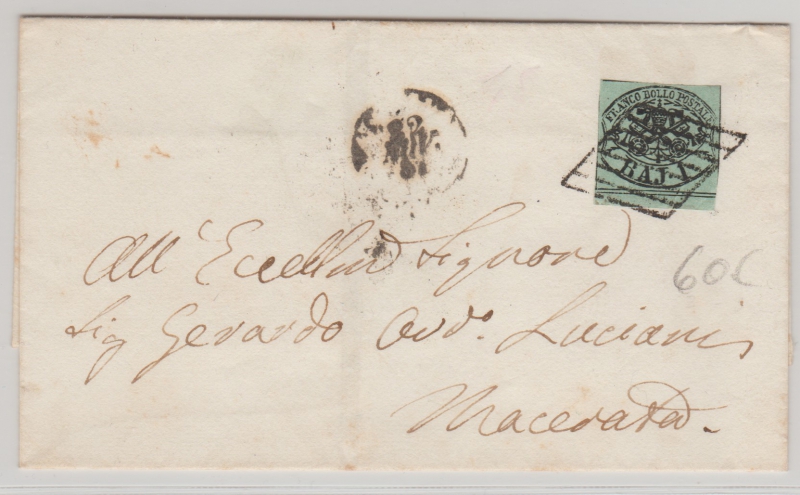 FRANCO BOLLO POSTALE
BAJ 1
All' Eccellmo Signore
Sig Gerardo Avvo. Luciani
Macerata.
60c